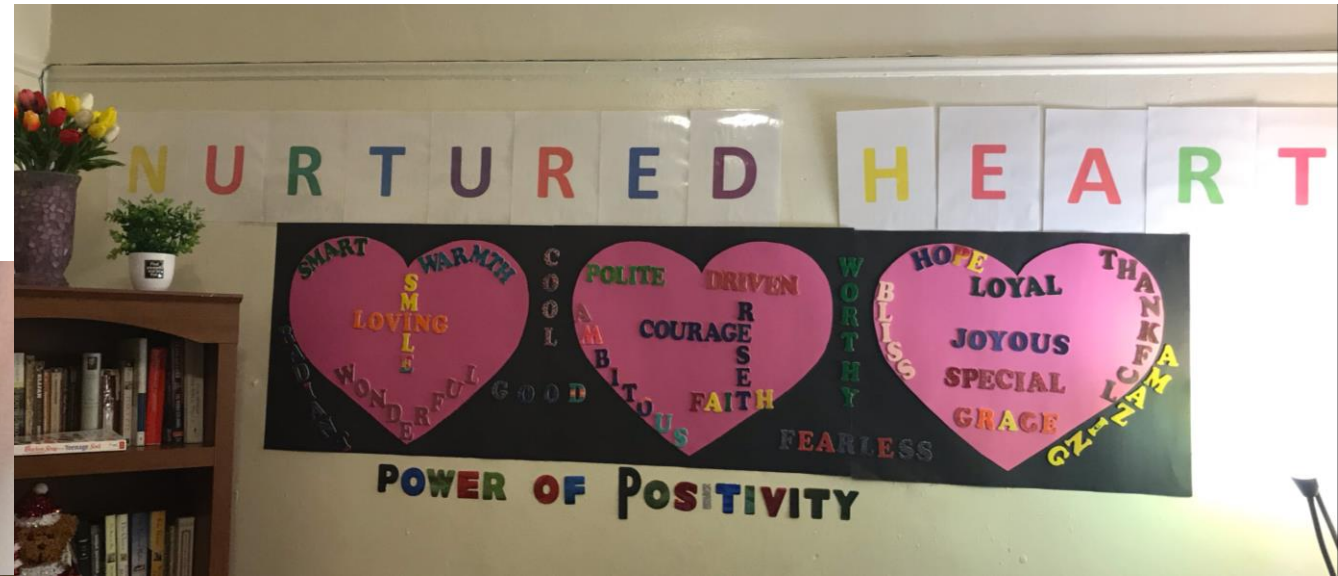 NURTURED HEART
SMART
WARMTH
SMILE
LOVING
WONDERFUL
RADIANT
COOL
GOOD
POLITE
DRIVEN
COURAGE
RESET
AMBITOUS
FAITH
WORTHY
FEARLESS
HOPE
LOYAL
BLISS
JOYOUS
SPECIAL
GRACE
THANKFUL
AMAZING
POWER OF POSITIVITY